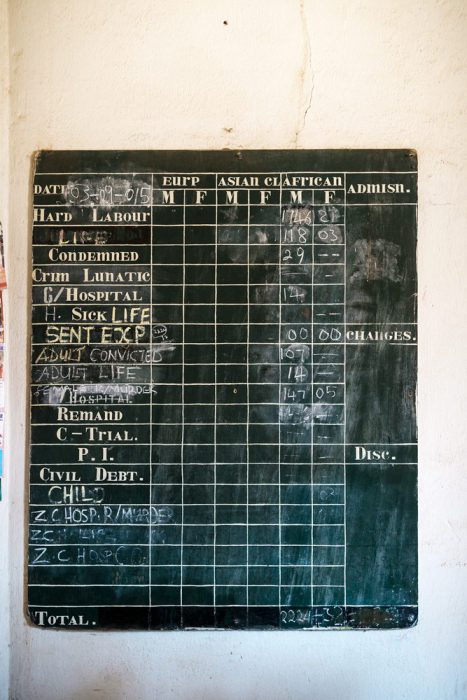 DATE 03-09-015 EURP ASIAN CL AFRICAN ADMISN.
M F M F M F
HARD LABOUR 1746
LIFE 118 03
CONDEMNED 29 --
CRIM LUNATIC -- --
G/HOSPITAL 14
H. SICK LIFE --
SENT EXP 00 00 CHANGES.
ADULT CONVICTED 167 --
ADULT LIFE 14 --
R/MURDER
HOSPITAL 147 05
REMAND
C-TRIAL.
P. I. DISC.
CIVIL DEBT.
CHILD
Z C HOSP. R/MURDER
Z C
Z. C HOSP
TOTAL. 2224-32